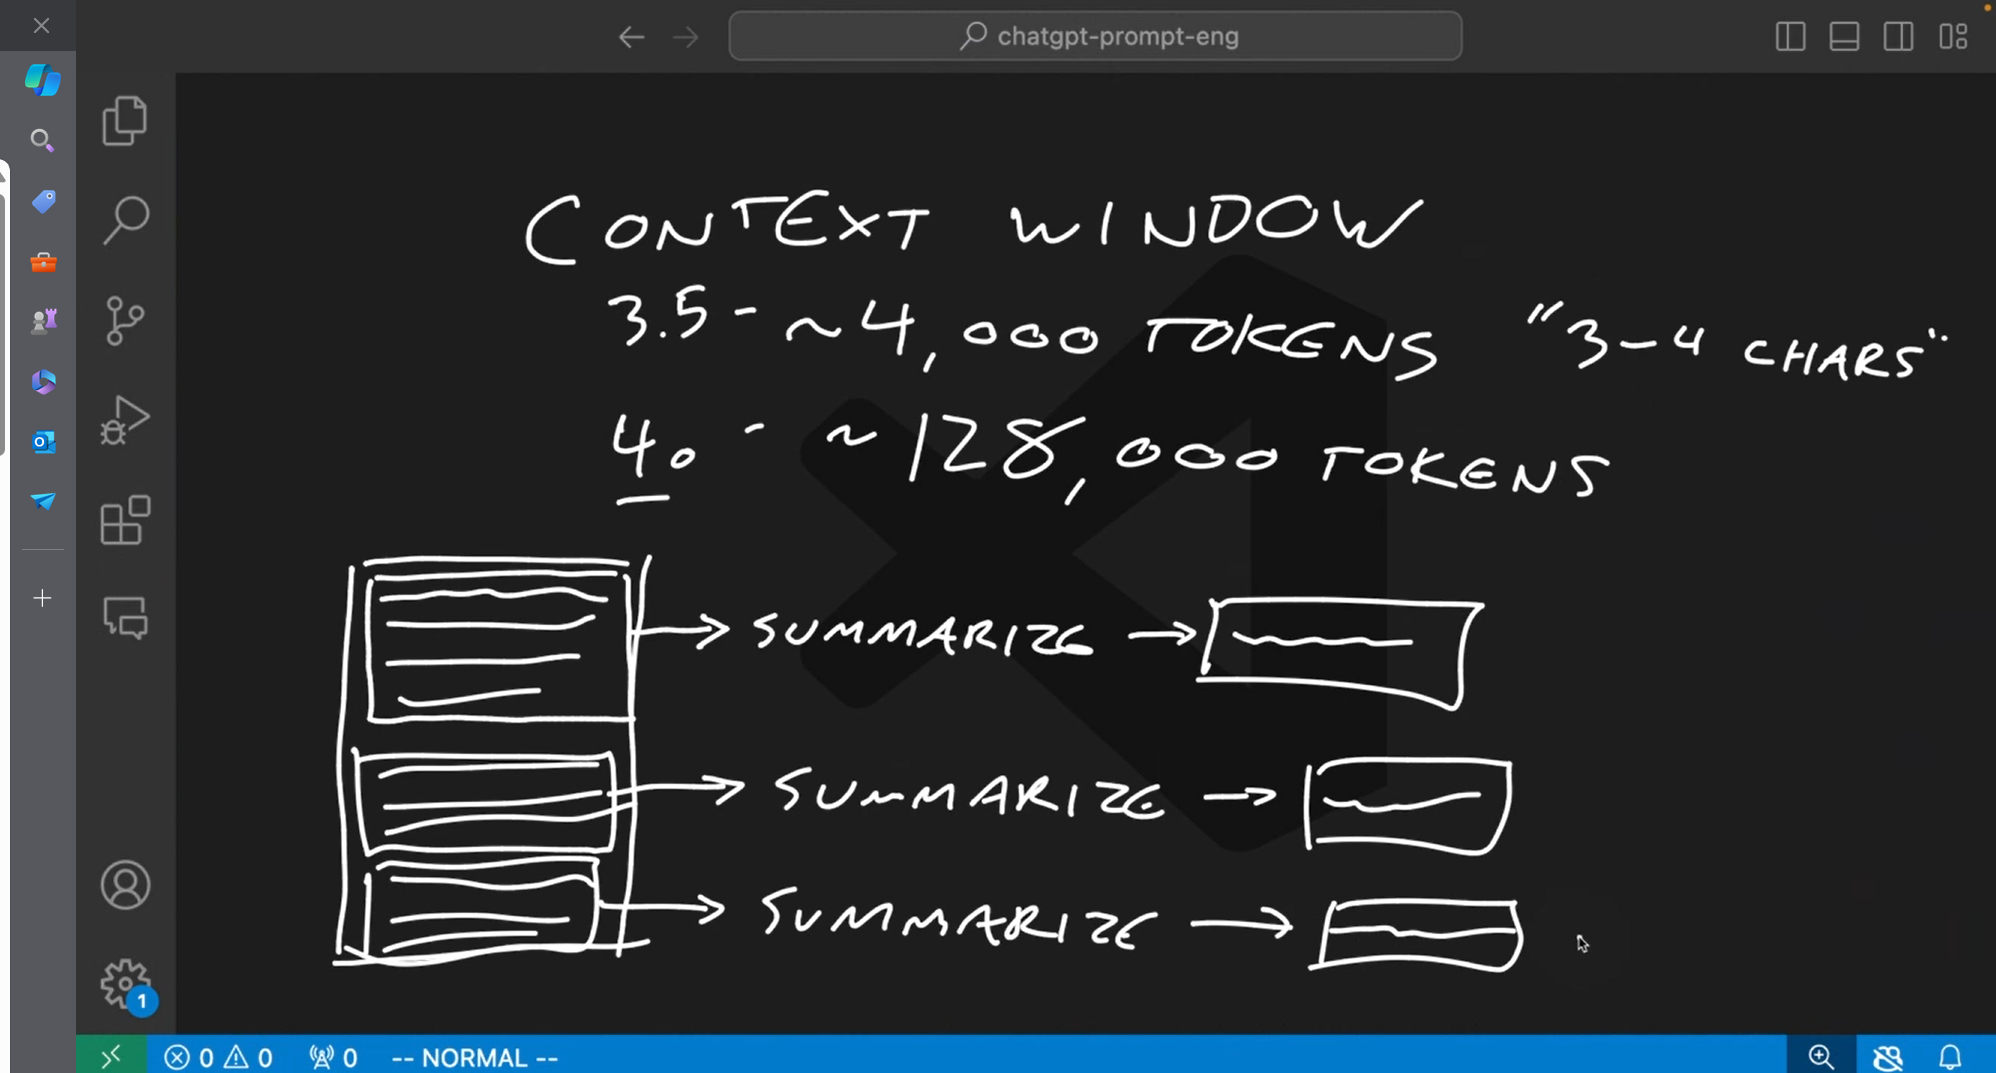 chatgpt-prompt-eng
CONTEXT WINDOW
3.5 - ~4,000 TOKENS "3-4 CHARS"
4o - ~128,000 TOKENS
SUMMARIZE
SUMMARIZE
SUMMARIZE
1
0 0 0 -- NORMAL --